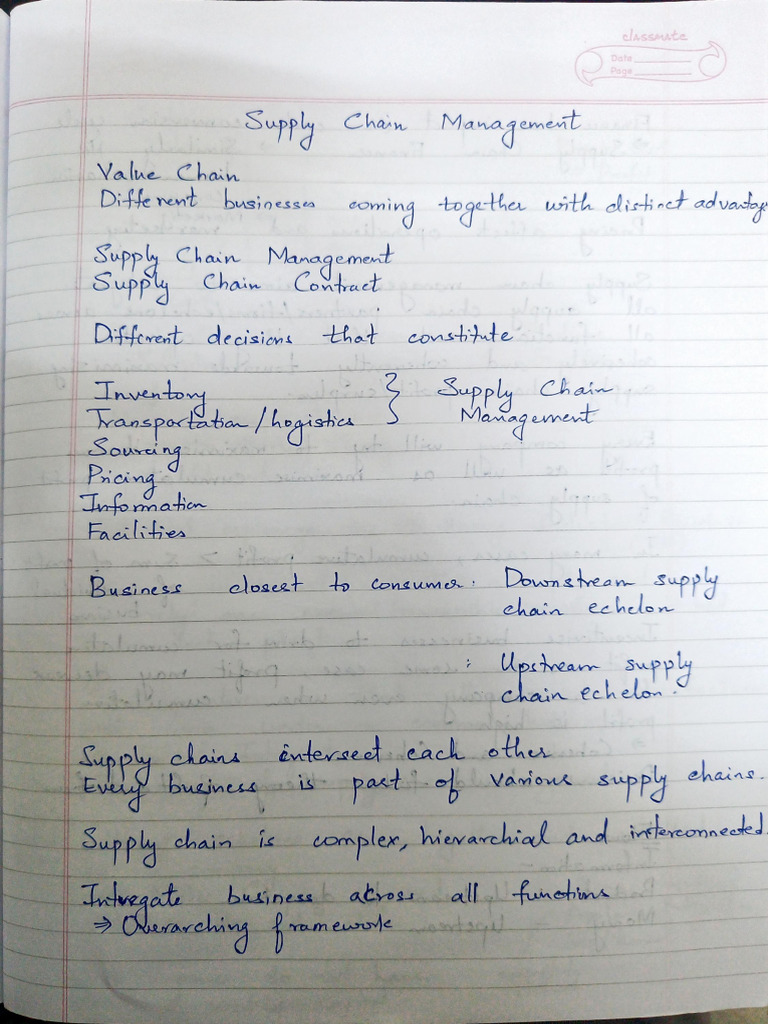 classmate
Date
Page
Supply Chain Management
Value Chain
Different businesses coming together with distinct advantage
Supply Chain Management
Supply Chain Contract
Different decisions that constitute
Inventory } Supply Chain
Transportation/Logistics Management
Sourcing
Pricing
Information
Facilities
Business closest to consumer : Downstream supply
chain echelon
: Upstream supply
chain echelon.
Supply chains intersect each other
Every business is part of various supply chains.
Supply chain is complex, hierarchial and interconnected.
Intregate business across all functions
⇒ Overarching framework